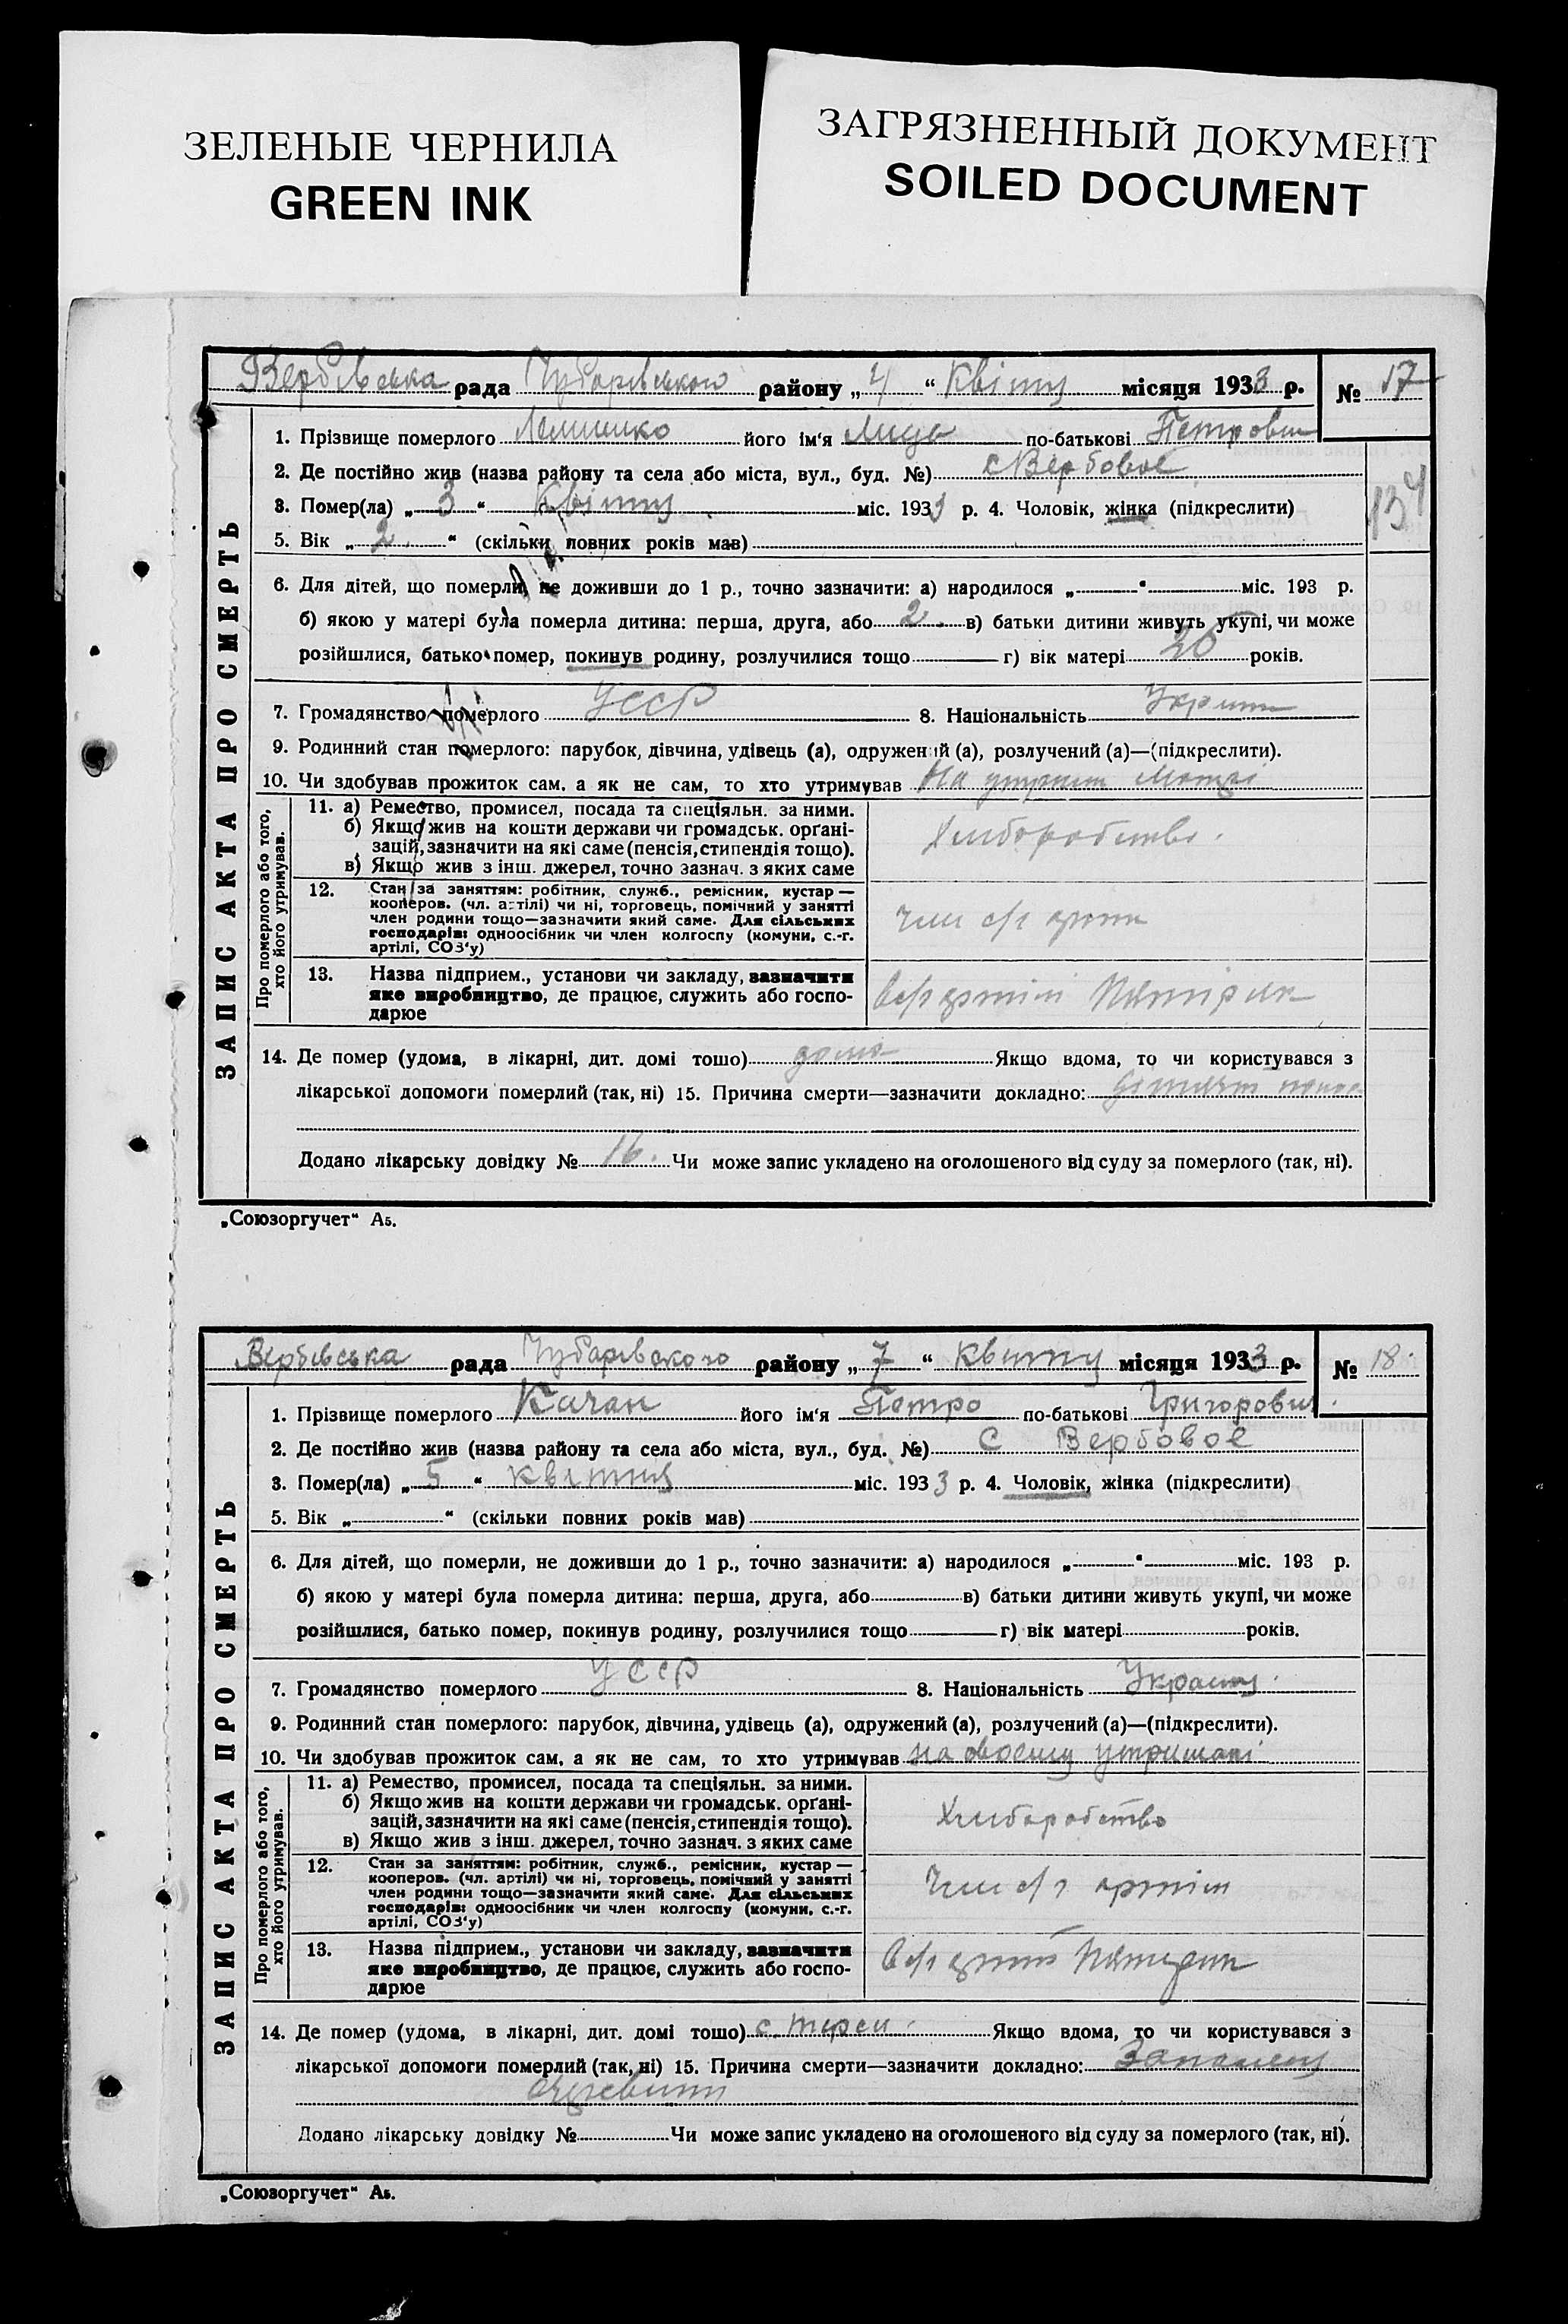 ЗЕЛЕНЫЕ ЧЕРНИЛА
GREEN INK
ЗАГРЯЗНЕННЫЙ ДОКУМЕНТ
SOILED DOCUMENT
Вербівська рада Чубарівського району „ 4 “ Квітня місяця 1933 р. № 17
1. Прізвище померлого його ім‘я по-батькові Петровна
2. Де постійно жив (назва району та села або міста, вул., буд. №) с Вербовое
3. Помер(ла) „ 3 “ Квітня міс. 1933 р. 4. Чоловік, жінка (підкреслити)
134
5. Вік „ 2. “ (скільки повних років мав)
6. Для дітей, що померли, не доживши до 1 р., точно зазначити: а) народилося „ “ міс. 193 р.
б) якою у матері була померла дитина: перша, друга, або 2. в) батьки дитини живуть укупі, чи може
розійшлися, батько помер, покинув родину, розлучилися тощо г) вік матері 20 років.
7. Громадянство померлого УССР 8. Національність
9. Родинний стан померлого: парубок, дівчина, удівець (а), одружений (а), розлучений (а)—(підкреслити).
10. Чи здобував прожиток сам, а як не сам, то хто утримував На утрим Матері
Про померлого або того, хто його утримував.
11. а) Ремество, промисел, посада та спеціяльн. за ними.
б) Якщо жив на кошти держави чи громадськ. орґані-
зацій, зазначити на які саме (пенсія, стипендія тощо).
в) Якщо жив з інш. джерел, точно зазнач. з яких саме
Хлиборобство.
12. Стан за заняттям: робітник, служб., ремісник, кустар —
кооперов. (чл. артілі) чи ні, торговець, помічний у занятті
член родини тощо—зазначити який саме. Для сільських
господарів: одноосібник чи член колгоспу (комуни, с.-г.
артілі, СОЗ‘у)
Член с/г
13. Назва підприєм., установи чи закладу, зазначити
яке виробництво, де працює, служить або госпо-
дарює
В с/г артілі
14. Де помер (удома, в лікарні, дит. домі тошо) дома Якщо вдома, то чи користувався з
лікарської допомоги померлий (так, ні) 15. Причина смерти—зазначити докладно:
Додано лікарську довідку № 16. Чи може запис укладено на оголошеного від суду за померлого (так, ні).
ЗАПИС АКТА ПРО СМЕРТЬ
„Союзоргучет“ А5.
Вербівська рада Чубарівского району „ 7 “ Квітня місяця 1933 р. № 18.
1. Прізвище померлого Качан його ім‘я Петро по-батькові Григорович
2. Де постійно жив (назва району та села або міста, вул., буд. №) С Вербовое
3. Помер(ла) „ 5 “ Квітня міс. 1933 р. 4. Чоловік, жінка (підкреслити)
5. Вік „ “ (скільки повних років мав)
6. Для дітей, що померли, не доживши до 1 р., точно зазначити: а) народилося „ “ міс. 193 р.
б) якою у матері була померла дитина: перша, друга, або в) батьки дитини живуть укупі, чи може
розійшлися, батько помер, покинув родину, розлучилися тощо г) вік матері років.
7. Громадянство померлого УССР 8. Національність
9. Родинний стан померлого: парубок, дівчина, удівець (а), одружений (а), розлучений (а)—(підкреслити).
10. Чи здобував прожиток сам, а як не сам, то хто утримував на своєму утримані
Про померлого або того, хто його утримував.
11. а) Ремество, промисел, посада та спеціяльн. за ними.
б) Якщо жив на кошти держави чи громадськ. орґані-
зацій, зазначити на які саме (пенсія, стипендія тощо).
в) Якщо жив з інш. джерел, точно зазнач. з яких саме
Хлиборобство
12. Стан за заняттям: робітник, служб., ремісник, кустар —
кооперов. (чл. артілі) чи ні, торговець, помічний у занятті
член родини тощо—зазначити який саме. Для сільських
господарів: одноосібник чи член колгоспу (комуни, с.-г.
артілі, СОЗ‘у)
Член с/г артіли
13. Назва підприєм., установи чи закладу, зазначити
яке виробництво, де працює, служить або госпо-
дарює
В с/г артілі
14. Де помер (удома, в лікарні, дит. домі тошо) с. Якщо вдома, то чи користувався з
лікарської допомоги померлий (так, ні) 15. Причина смерти—зазначити докладно:
Додано лікарську довідку № Чи може запис укладено на оголошеного від суду за померлого (так, ні).
ЗАПИС АКТА ПРО СМЕРТЬ
„Союзоргучет“ А5.